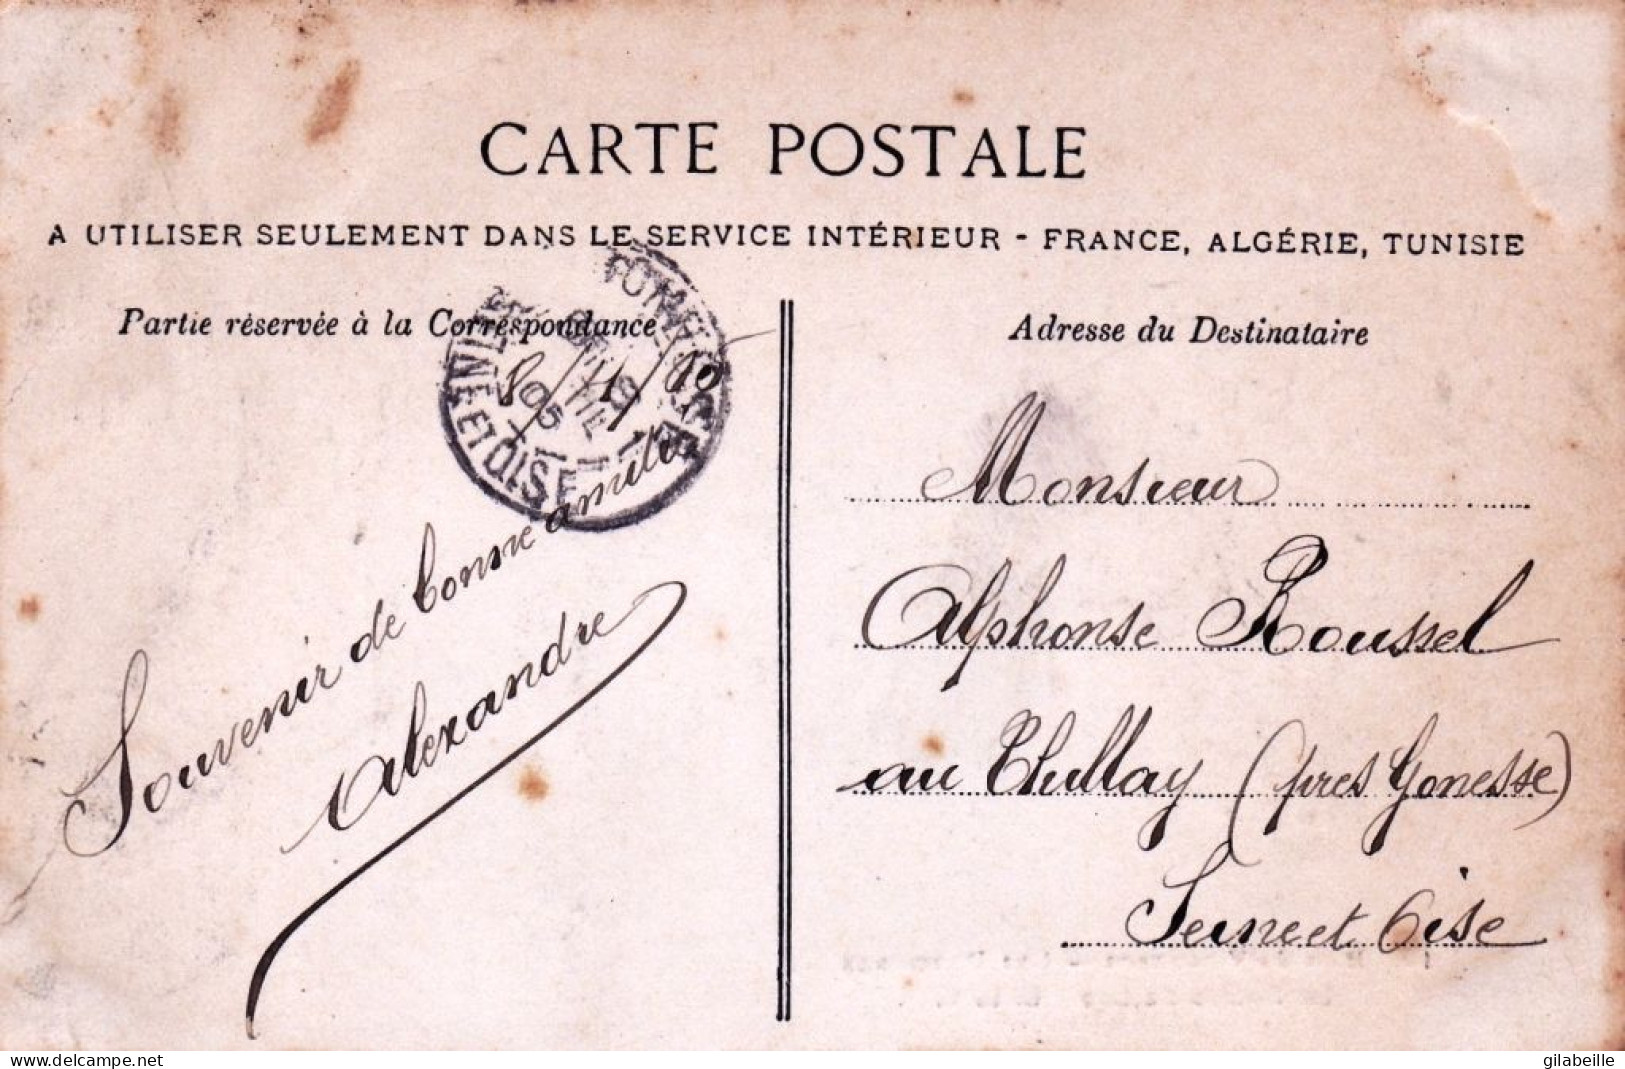 CARTE POSTALE
A UTILISER SEULEMENT DANS LE SERVICE INTÉRIEUR - FRANCE, ALGÉRIE, TUNISIE
Partie réservée à la Correspondance
8/1/10
05
SEINE ET OISE
Souvenir de bonne amitié
Alexandre
Adresse du Destinataire
Monsieur
Alphonse Roussel
au Thillay (près Gonesse)
Seine et Oise
www.delcampe.net
gilabeille